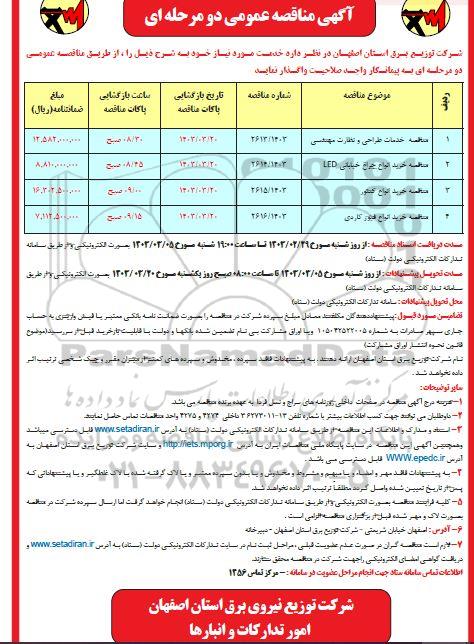 آگهی مناقصه عمومی دو مرحله ای
شرکت توزیع برق استان اصفهان در نظر دارد خدمت مورد نیاز خود به شرح ذیل را ، از طریق مناقصه عمومی
دو مرحله ای به پیمانکار واجد صلاحیت واگذار نماید
ردیف موضوع مناقصه شماره مناقصه تاریخ بازگشایی پاکات مناقصه ساعت بازگشایی پاکات مناقصه مبلغ ضمانتنامه(ریال)
۱ مناقصه خدمات طراحی و نظارت مهندسی ۲۶۱۳/۱۴۰۳ ۱۴۰۳/۰۳/۲۰ ۰۸/۳۰ صبح ۱۲,۵۸۲,۰۰۰,۰۰۰
۲ مناقصه خرید انواع چراغ خیابانی LED ۲۶۱۴/۱۴۰۳ ۱۴۰۳/۰۳/۲۰ ۰۸/۴۵ صبح ۸,۸۱۰,۰۰۰,۰۰۰
۳ مناقصه خرید انواع کنتور ۲۶۱۵/۱۴۰۳ ۱۴۰۳/۰۳/۲۰ ۰۹/۰۰ صبح ۱۶,۳۰۲,۵۰۰,۰۰۰
۴ مناقصه خرید انواع فیوز کاردی ۲۶۱۶/۱۴۰۳ ۱۴۰۳/۰۳/۲۰ ۰۹/۱۵ صبح ۷,۱۱۲,۵۰۰,۰۰۰
مدت دریافت اسناد مناقصه : از روز شنبه مورخ ۱۴۰۳/۰۲/۲۹ تا ساعت ۱۹:۰۰ شنبه مورخ ۱۴۰۳/۰۳/۰۵ بصورت الکترونیکی و از طریق سامانه
تدارکات الکترونیکی دولت (ستاد)
مدت تحویل پیشنهادات : از روز شنبه مورخ ۱۴۰۳/۰۳/۰۵ تا ساعت ۰۸:۰۰ صبح روز یکشنبه مورخ ۱۴۰۳/۰۳/۲۰ بصورت الکترونیکی و از طریق
سامانه تدارکات الکترونیکی دولت (ستاد)
محل تحویل پیشنهادات : سامانه تدارکات الکترونیکی دولت (ستاد)
تضامین مورد قبول: پیشنهاددهندگان مکلفند معادل مبلغ سپرده شرکت در مناقصه را بصورت ضمانت نامه بانکی معتبر یا فیش واریزی به حساب
جاری سپهر صادرات به شماره و یا اوراق مشارکت بی نام تضمین شده بانکها و دولت با قابلیت بازخرید قبل از سررسید(موضوع
قانون نحوه انتشار اوراق مشارکت)
نام شرکت توزیع برق استان اصفهان ارائه دهند . به پیشنهادات فاقد سپرده ، مخدوش و سپرده های کمتر از میزان مقرر و چک شخصی ترتیب اثر
داده نخواهد شد .
سایر توضیحات:
۱–هزینه درج آگهی مناقصه در صفحات داخلی روزنامه های سراج و نسل فردا به عهده برنده مناقصه می باشد
۲– داوطلبان می توانند جهت کسب اطلاعات بیشتر با شماره تلفن داخلی ۴۲۷۴ و ۴۲۷۵ واحد مناقصات تماس حاصل نمایند.
۳– اسناد و مدارک و اطلاعات این مناقصه از طریق سامانه تدارکات الکترونیکی دولت (ستاد) به آدرس www.setadiran.ir قابل دسترسی میباشد
وهمچنین آگهی این مناقصه در سایت پایگاه ملی مناقصات ایران به آدرس http://iets.mporg.ir و وبسایت شرکت توزیع برق استان اصفهان به
آدرس WWW.epedc.ir قابل دسترسی می باشد .
۴– به پیشنهادات فاقد مهر و امضاء و یا مبهم و مشروط و مخدوش و یا بدون سپرده معتبر و یا لاک گرفته شده یا لاک غلطگیر و یا پیشنهاداتی که
پس از تاریخ تعیین شده واصل گردد مطلقاً ترتیب اثر داده نخواهد شد.
۵– کلیه فرآیند مناقصه بصورت الکترونیکی و از طریق سامانه تدارکات الکترونیکی دولت (ستاد) انجام خواهد گرفت اما ارسال سپرده شرکت در مناقصه
بصورت لاک و مهر شده قبل از برگزاری مناقصه الزامی است .
۶– آدرس : اصفهان خیابان شریعتی – شرکت توزیع برق استان اصفهان – دبیرخانه
۷–لازم است مناقصه گران در صورت عدم عضویت قبلی ، مراحل ثبت نام در سایت تدارکات الکترونیکی دولت (ستاد) به آدرس www.setadiran.ir و
دریافت گواهی امضای الکترونیکی راجهت شرکت در مناقصه محقق سازند.
اطلاعات تماس سامانه ستاد جهت انجام مراحل عضویت در سامانه : – مرکز تماس ۱۴۵۶
شرکت توزیع نیروی برق استان اصفهان
امور تدارکات و انبارها